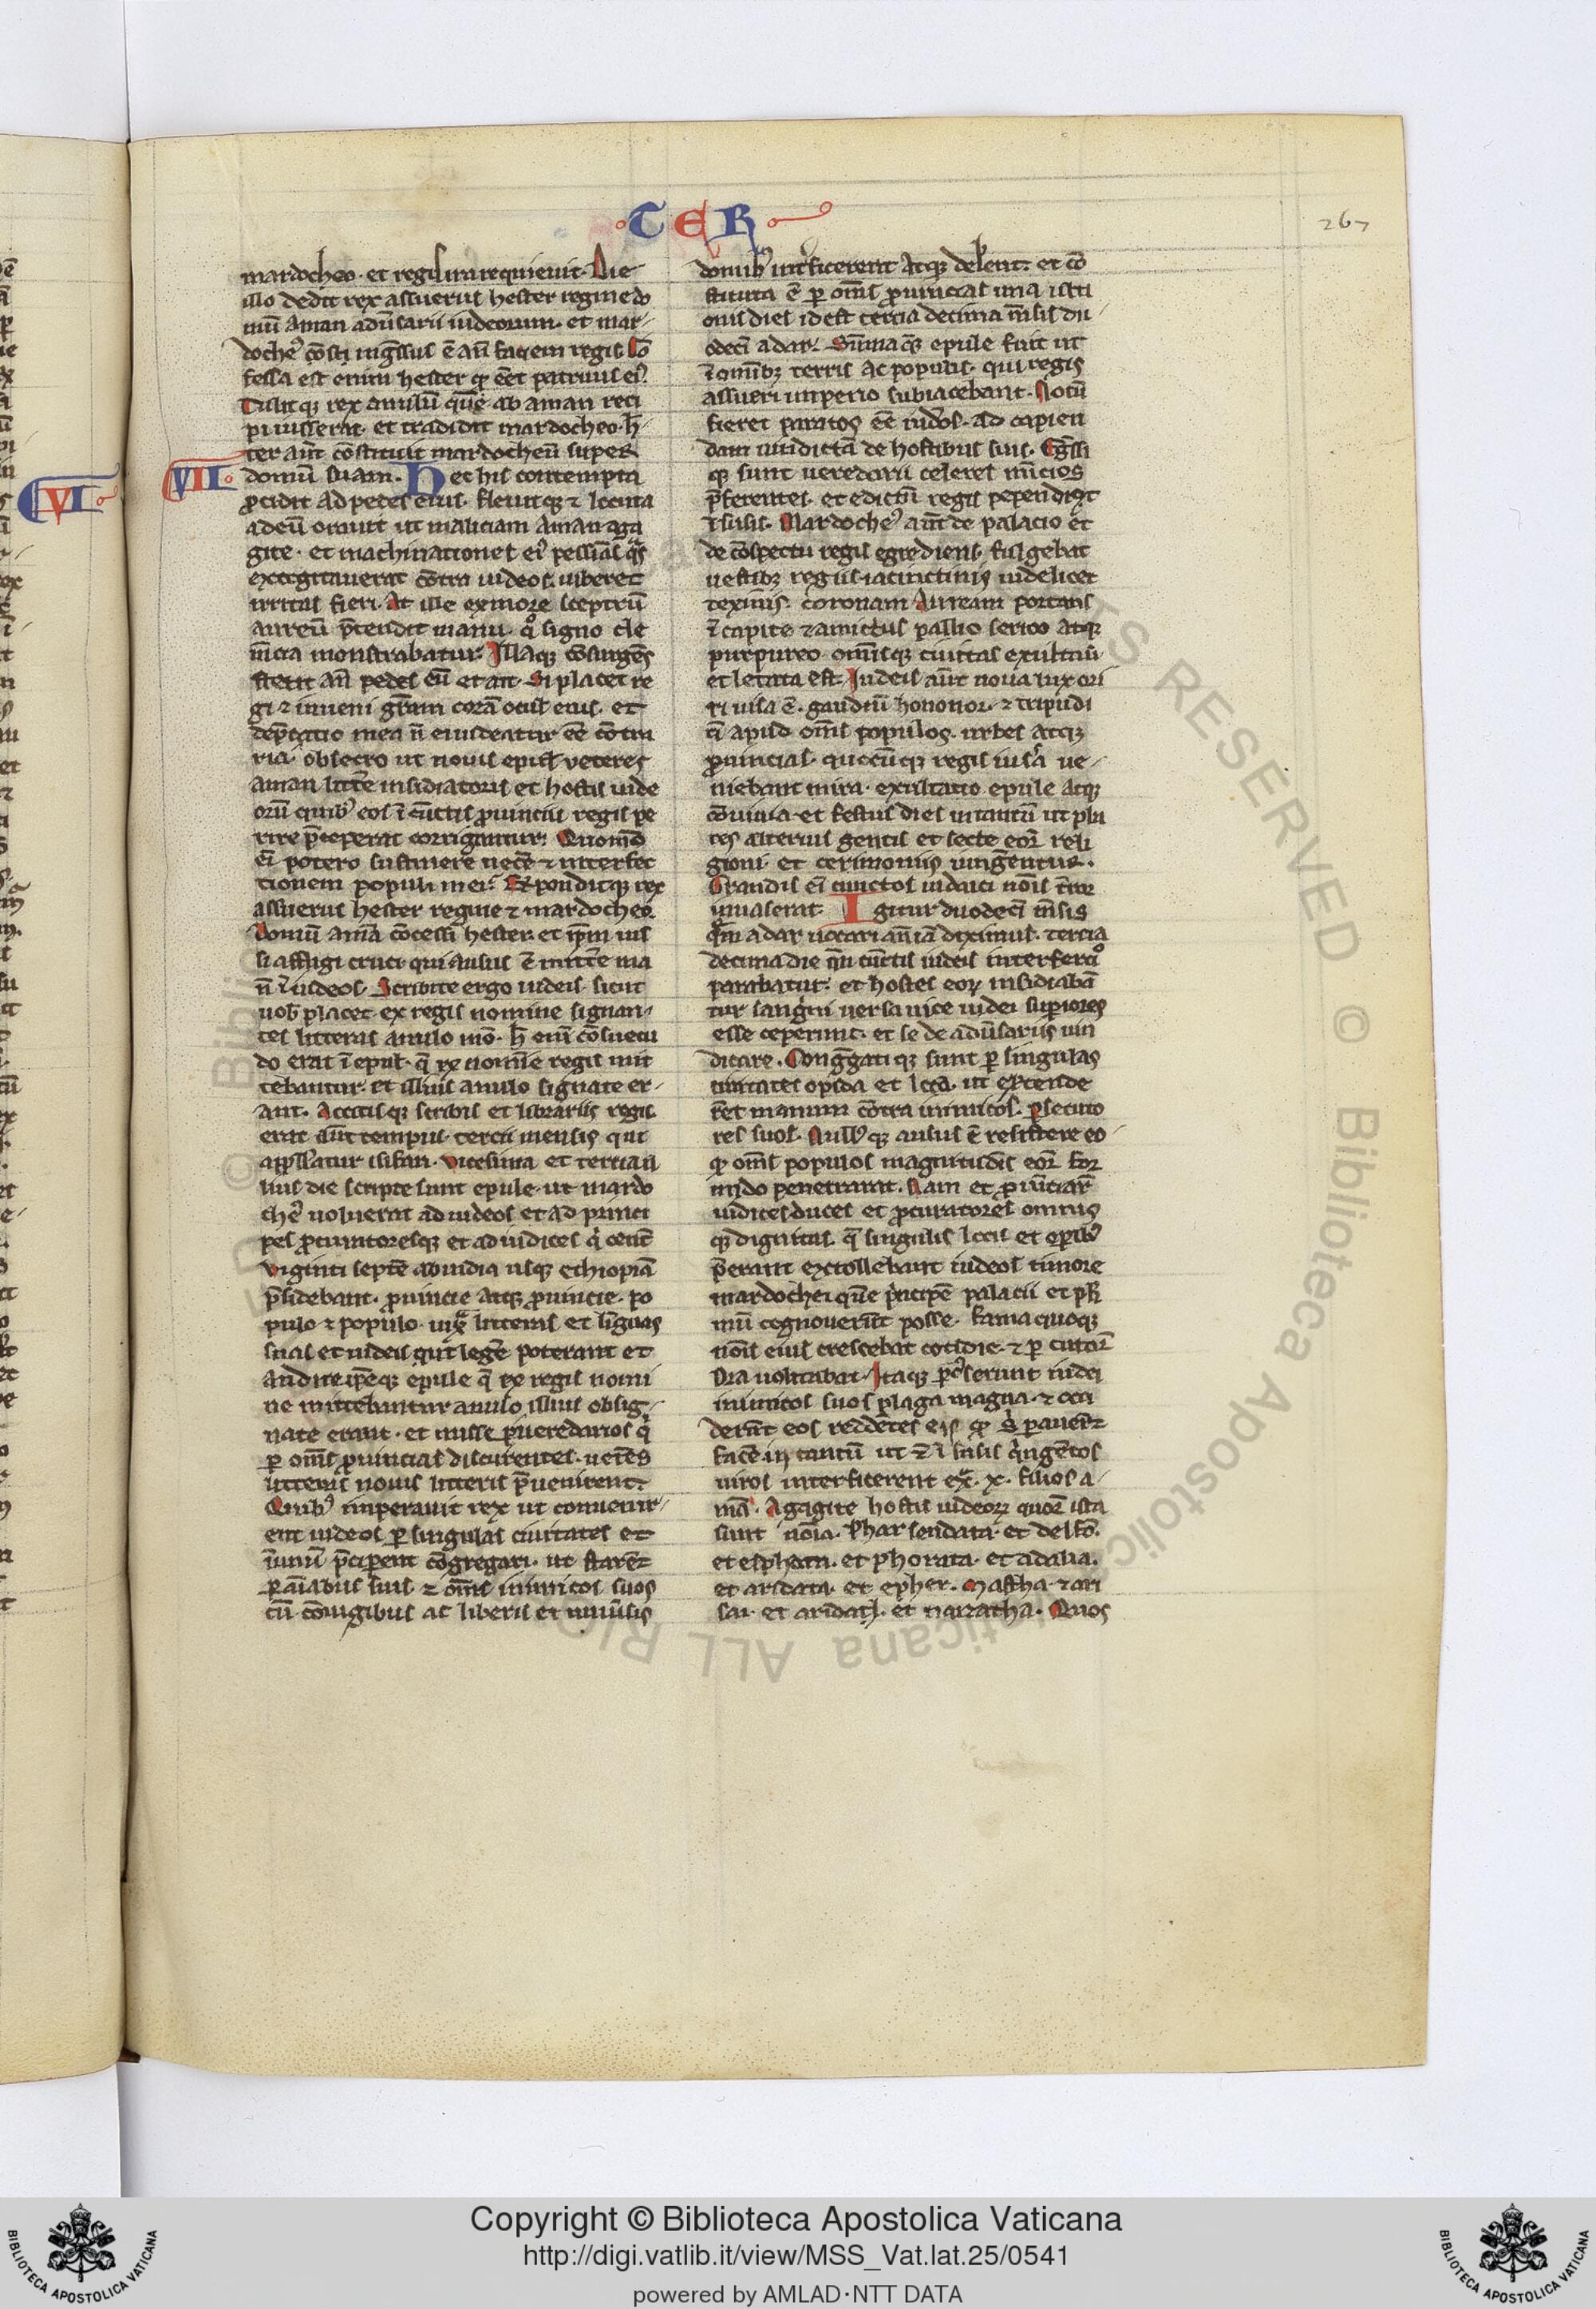 ·TER
267
mardocheo· et regis ira requieuit· Die
illo dedit rex assuerus hester regine do
mũ aman adũsarii iudeorum· et mar-
docheꝰ cõsti ingͣssus ẽ añ faciem regis Cõ
fessa est enim hester qͥ eẽt patruus eiꝰ.
Tulitqꝫ rex anulũ quẽ ab aman reci
pi iusserat· et tradidit mardocheo· h̃
ter aut̃ cõstituit mardocheũ super
VII· domũ suam· Nec his contempta
ꝓcidit ad pedes eius· fleuitqꝫ ⁊ locuta
ad eũ orauit ut maliciam aman aga
gite· et machinationes eiꝰ pessiãs qͣs
excogitauerat cõtra iudeos· iuberet
irritas fieri· At ille ex more sceptrũ
aureũ p̃tendit manu· qͦ signo cle
m̃cia monstrabatur· Illaqꝫ cõsurgẽs
stetit añ pedes eiꝰ et ait· Si placet re
gi ⁊ inueni gr̃am corã oculis eius· et
dep̃catio mea ñ ei uideatur eẽ cõtra
ria· obsecro ut nouis epistl̃ veteres
aman litt̃e insidiatoris et hostis iude
orũ quibꝰ eos ĩ cũctis ꝓuinciis regis pe
rire p̃ceperat corrigantur· Quomõ
eĩ potero sustinere necẽ ⁊ interfec
tionem populi mei· Responditqꝫ rex
assuerus hester regine ⁊ mardocheo·
Domũ amã cõcessi hester· et ip̃m ius
si affigi cruci· qui ausus ẽ mittẽ ma
ñ ĩ iudeos· Scribite ergo iudeis· sicut
uob̃ placet· ex regis nomine signan-
tes litteras anulo mõ· h̃ enĩ cõsuetu
do erat ĩ epistl̃· q̃ ex nomĩe regis mit
tebantur· et illius anulo signate er-
ant· Accitisqꝫ scribis et librariis regis·
erat aut̃ tempus· tercii mensis qui
appellatur siban· vicesima et tercia il
lius die scripte sunt epule· ut mardo
cheꝰ uoluerat ad iudeos et ad princi
pes ꝓcuratoresqꝫ et ad iudices qͥ centũ
viginti septẽ ab india usqꝫ ethiopiã
p̃sidebant· ꝓuincie atqꝫ ꝓuincie· po
pulo ⁊ populo· iuxͣ litteras et linguas
suas et iudeis qui legẽ poterant et
audire ip̃eqꝫ epule q̃ ex regis nomi
ne mittebantur anulo illius obsig-
nate erant· et misse ꝑ ueredarios qͥ
ꝑ om̃s ꝓuincias discurrentes· ueteres
litteras nouis litteris p̃uenirent·
Quibꝰ imperauit rex ut conuenir-
ent iudeos ꝑ singulas ciuitates et
ĩ unũ p̃ciperent cõgregari· ut starẽt
ꝑ ãiabus suis· ⁊ om̃s inimicos suos
cũ cõiugibus ac liberis et uniũsis
domibꝰ int̃ficerent Atqꝫ delerent· et cõ
stituta ẽ ꝑ om̃s ꝓuincias una ulti
onis dies id est tercia decima m̃sis du-
odeci adar· Sũma qꝫ epule fuit ut
ĩ omĩbꝫ terris Ac populis· qui regis
assueri imperio subiacebant· Notũ
fieret paratos eẽ iudeos· ad capien
dam uindictã de hostibus suis· Egͣssi
qꝫ sunt ueredarii celeres nũcios
p̃ferentes· et edictũ regis pependit
ĩ susis· Mardocheꝰ aut̃ de palacio et
de cõspectu regis egrediens· fulgebat
uestibꝫ regiis· iacinctinis uidelicet
texinis· coronam Auream portans
ĩ capite ⁊ amictus pallio serico atqꝫ
purpureo· omĩsqꝫ ciuitas exultauit
et letata est· Iudeis aut̃ noua lux ori
ri uisa ẽ· gaudiũ hononor· ⁊ tripudi
ũ apud om̃s populos· urbes atqꝫ
ꝓuincias· quocũqꝫ regis iussa ue-
niebant mira· exultatio epule atqꝫ
cõuiuia· et festus dies in tantũ ut plu
res alterius gentis et secte eoꝝ reli
gioni et cerimoniis iungerentur·
Grandis eĩ cunctos iudaici nois t̃ror
inuaserat· Igitur duodeci m̃sis
qͣm adar uocari añ iã diximus· tercia
decima die qñ cũctis iudeis interfectiͦ
parabatur· et hostes eoꝝ insidiabã
tur sangͥni uersa uice iudei superiores
esse ceperunt· et se de adũsariis uin
dicare· Congͣgatiqꝫ sunt ꝑ singulas
ciuitates opida et loca· ut extende
rẽt manum cõtra inimicos· ꝑsecuto
res suos· Nullꝰqꝫ ausus ẽ resistere eo-
qͥ om̃s populos magnitudĩs eoꝝ for
mido penetrarat· Nam et ꝓuinciaꝝ
iudices duces et ꝓcuratores omnis
qꝫ dignitas· q̃ singulis locis et opibꝰ
p̃erant extollebant iudeos timore
mardochei quẽ pͥncipẽ palacii et plͥ
mũ cognouerũt posse· fama quoqꝫ
nois eius crescebat cotidie· ⁊ ꝑ cunctoꝝ
ora uolitabat· Itaqꝫ pcͥserunt iudei
inimicos suos plaga magna· ⁊ occi
derũt eos reddẽtes eis qͥ sͥ pauerãt
facẽ in tantũ ut ⁊ ĩ susis qͥngẽtos
uiros interficerent exͣ· x· filios a-
mã· Agagite hostis iudeoꝝ quoꝝ ista
sunt noĩa· Phar sendata· et delfõ·
et esphata· et phorata· et adalia·
et aridata· et epher· Mastha· ⁊ ari
sai· et aridath· et narzatha· Quos
VI·
Copyright © Biblioteca Apostolica Vaticana
http://digi.vatlib.it/view/MSS_Vat.lat.25/0541
powered by AMLAD·NTT DATA
BIBLIOTECA APOSTOLICA VATICANA
BIBLIOTECA APOSTOLICA VATICANA